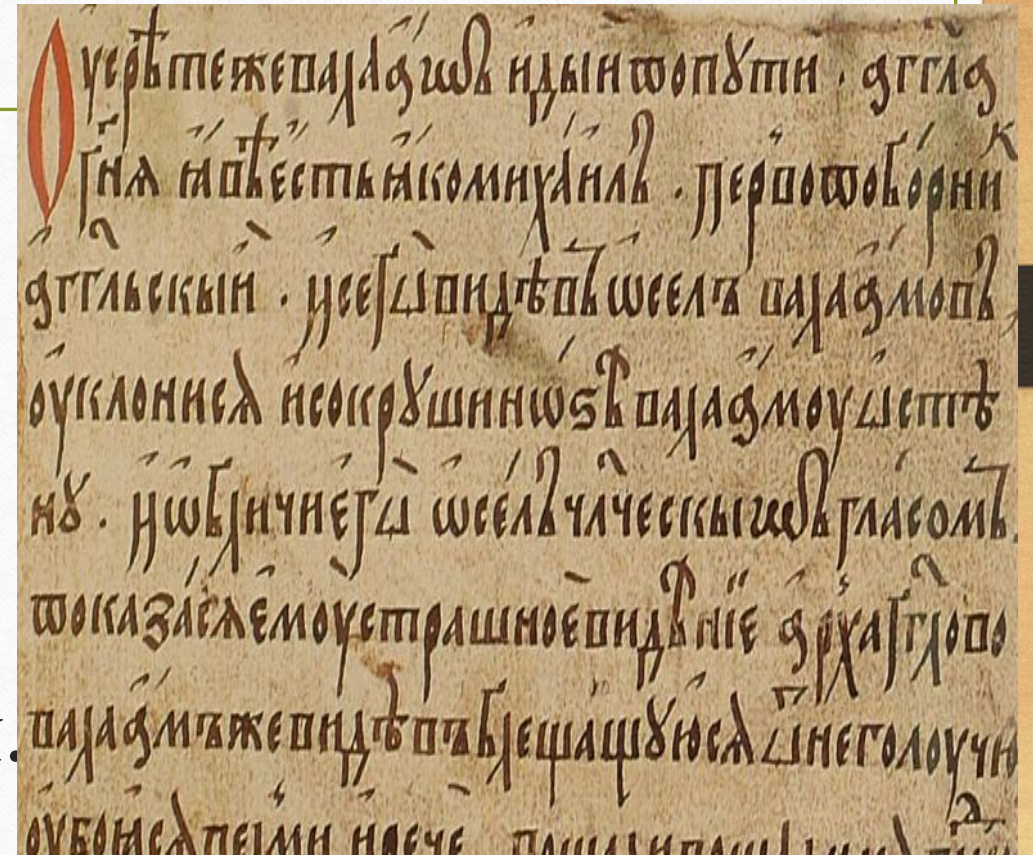 Оусрѣтежевалаам идыипопꙋти . аггла
гн҃я ꙗвѣстьꙗкомихаилъ . первопоборник
аггл҃ьскыи . исегѡвидѣвъѡселъ валаамовъ
оуклонисѧ исокрꙋшинѡѕѣ валаамоу ѡстѣ
нꙋ . иѡбличиегѡ ѡселъ чл҃ческы гласомъ
показасѧемоустрашноевидѣнїе архаггл҃ово
валаамъжевидѣвъблещащꙋюсѧ ѿнеголоучю
оубоꙗсѧвелми ирече